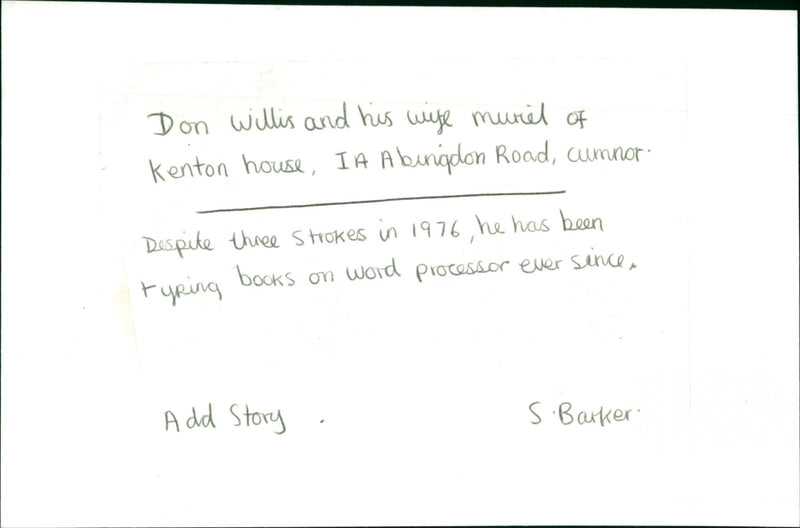 Don Willis and his wife muriel of
Kenton house, 1A Abingdon Road, cumnor.
Despite three strokes in 1976, he has been
typing books on word processor ever since.
Add Story .
S. Barker.